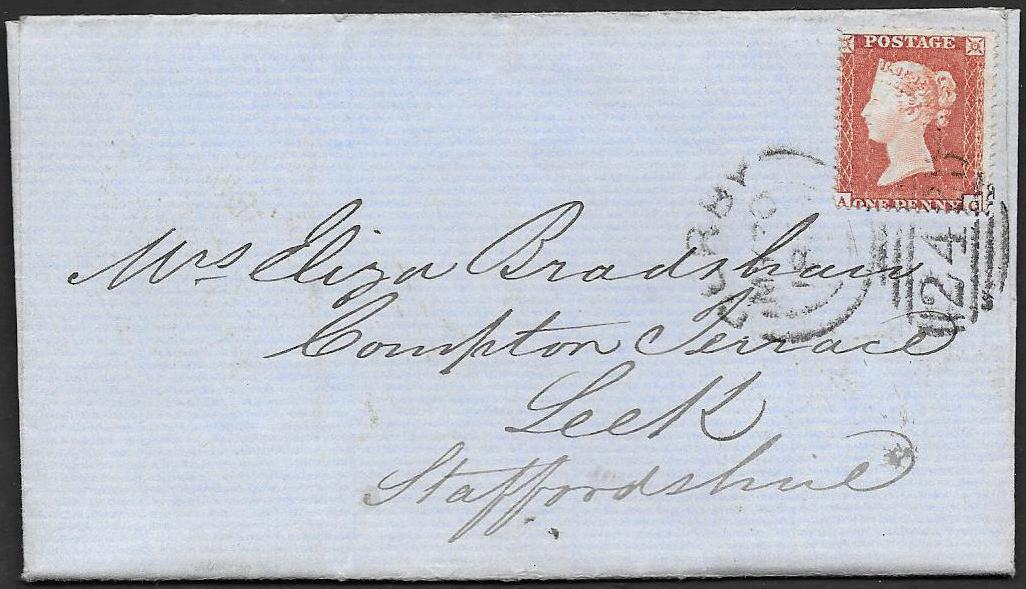 POSTAGE
A ONE PENNY
Mrs Eliza Bradshaw
Compton Terrace
Leek
Staffordshire